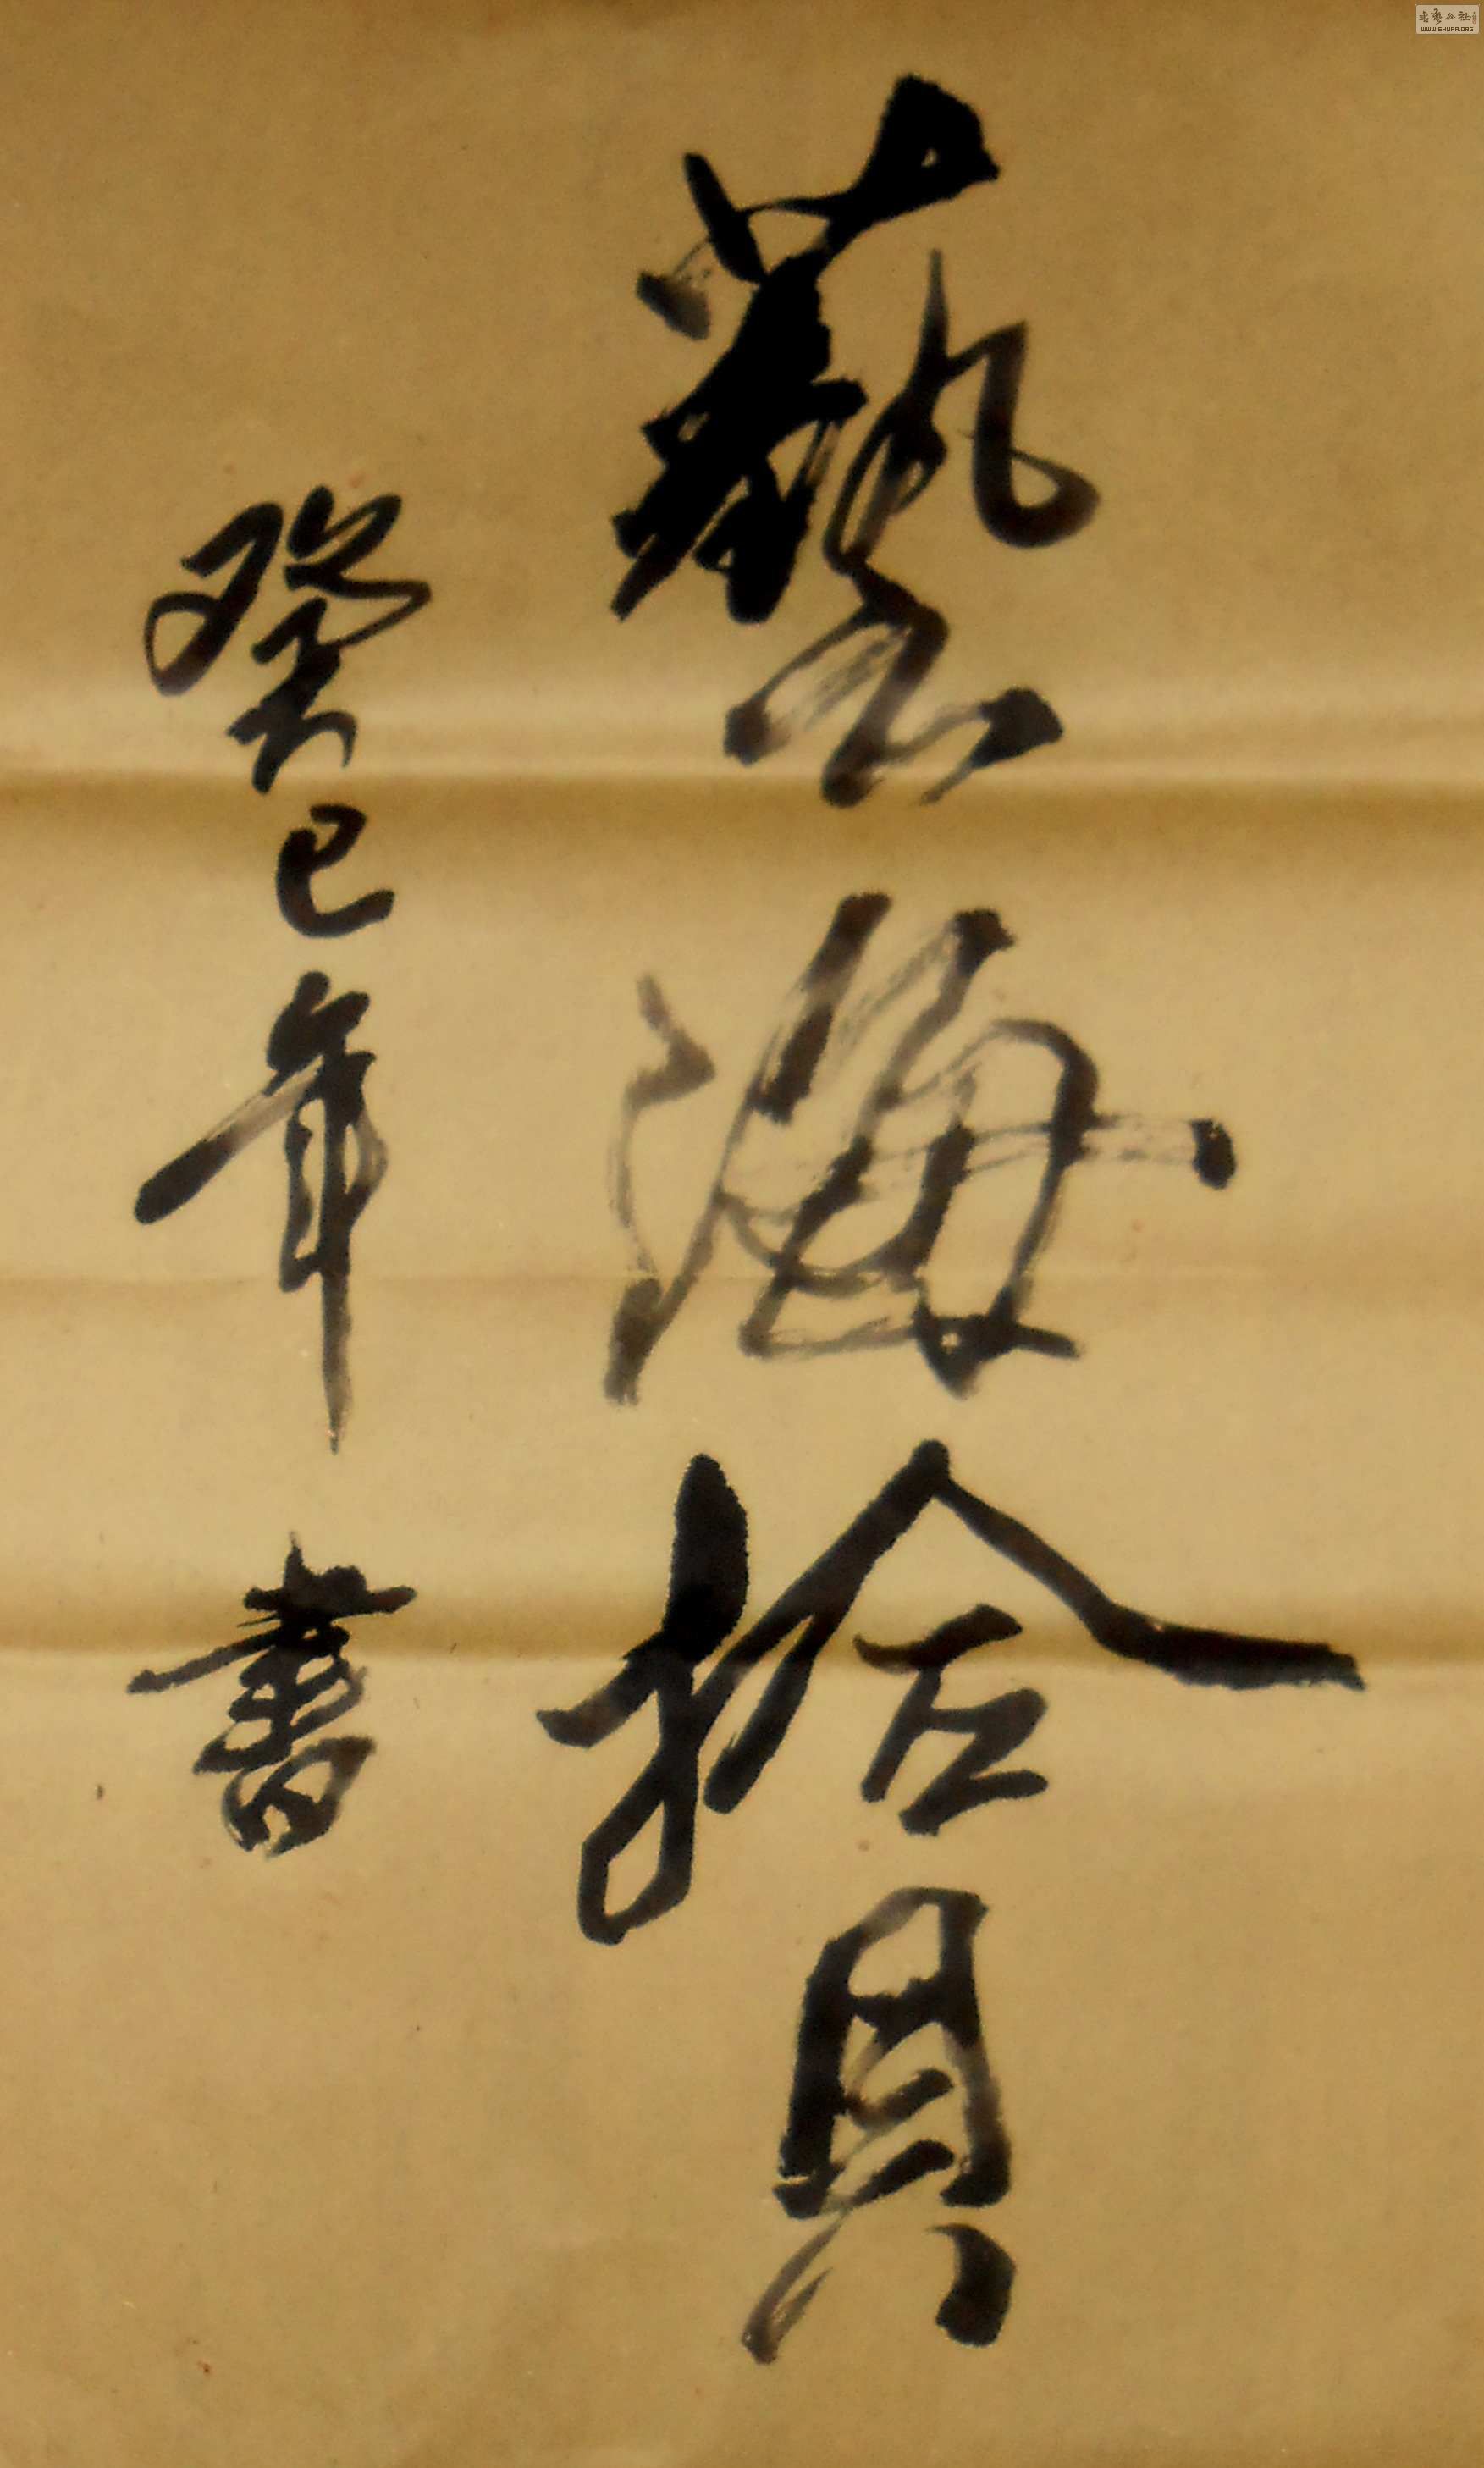 藝海拾貝
癸巳年 書
WWW.SHUFA.ORG